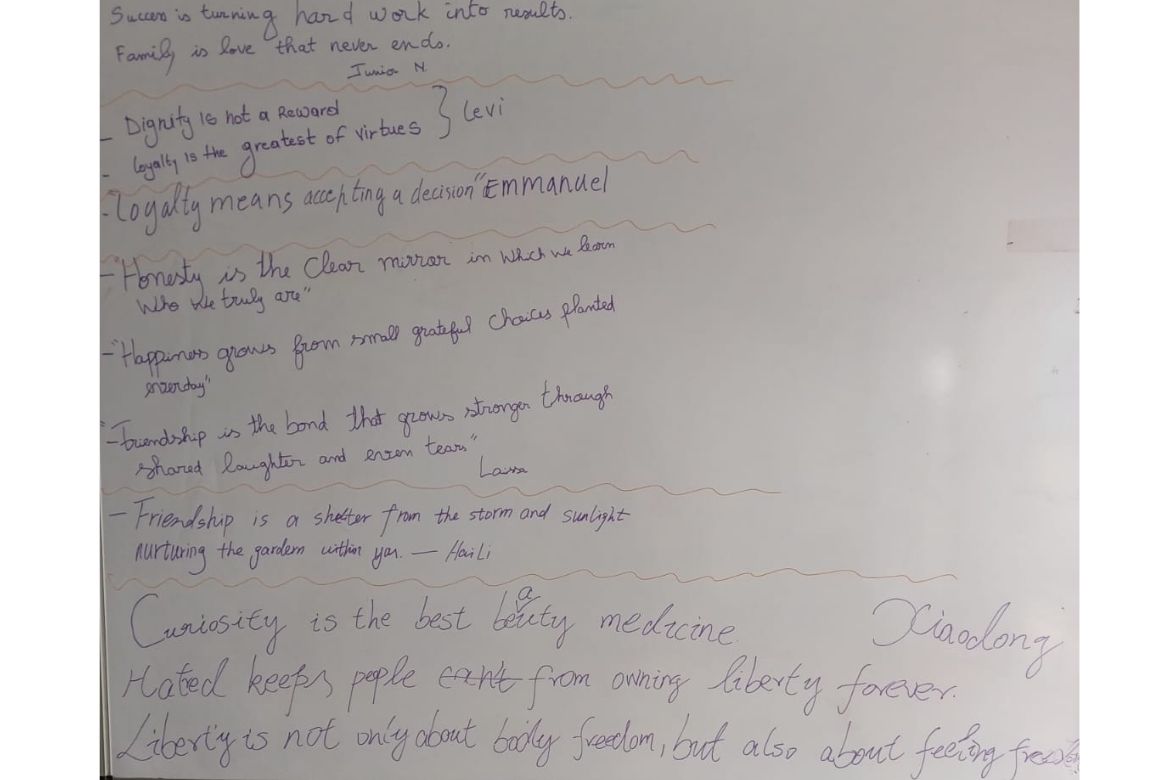 Success is turning hard work into results.
Family is love that never ends.
Junior N.
- Dignity is not a Reward
- Loyalty is the greatest of virtues } Levi
- Loyalty means accepting a decision" Emmanuel
- "Honesty is the Clear mirror in which we learn
Who we truly are"
- "Happiness grows from small grateful choices planted
everyday"
"- Friendship is the bond that grows stronger through
shared laughter and even tears"
Laissa
- Friendship is a shelter from the storm and sunlight
nurturing the gardem within you. — HaiLi
Curiosity is the best beauty medicine. Xiaodong
Hated keeps pople from owning liberty forever.
Liberty is not only about boily freedom, but also about feeling